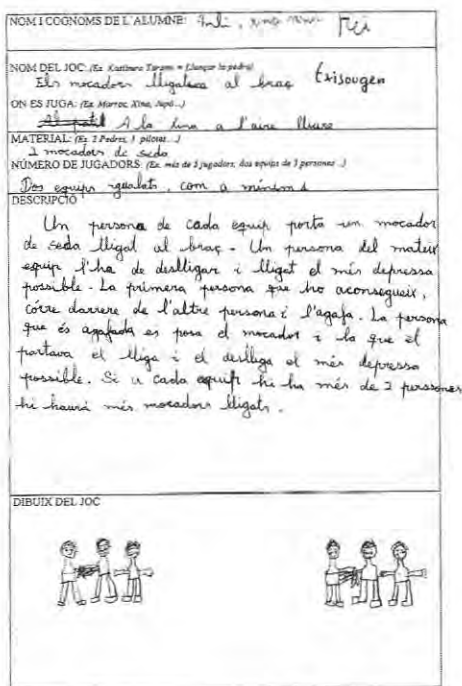 NOM I COGNOMS DE L'ALUMNE:
NOM DEL JOC: (Ex. Kastimara Tarams = Llançar la pedra)
Els mocadors lligats al braç Exisougen
ON ES JUGA: (Ex. Marroc, Xina, Japó...)
A la Xina a l'aire lliure
MATERIAL: (Ex. 2 Pedres, 3 pilotes...)
2 mocadors de seda
NÚMERO DE JUGADORS: (Ex. més de 5 jugadors, dos equips de 3 persones...)
Dos equips igualats, com a mínim 1
DESCRIPCIÓ
Un persona de cada equip porta un mocador
de seda lligat al braç. Un persona del mateix
equip l'ha de deslligar i lligat el més depressa
possible. La primera persona que ho aconsegueix,
córre darrere de l'altre persona i l'agafa. La persona
que és agafada es posa el mocador i la que el
portava el lliga i el deslliga el més depressa
possible. Si a cada equip hi ha més de 2 perssones
hi haurà més mocadors lligats.
DIBUIX DEL JOC